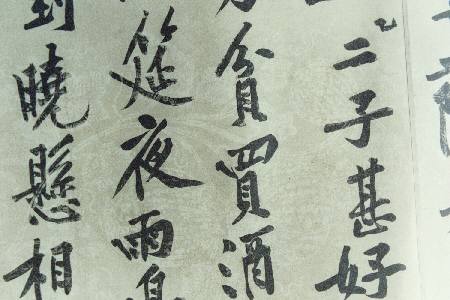 二子甚好
貧買酒
筵夜雨
到曉懸相